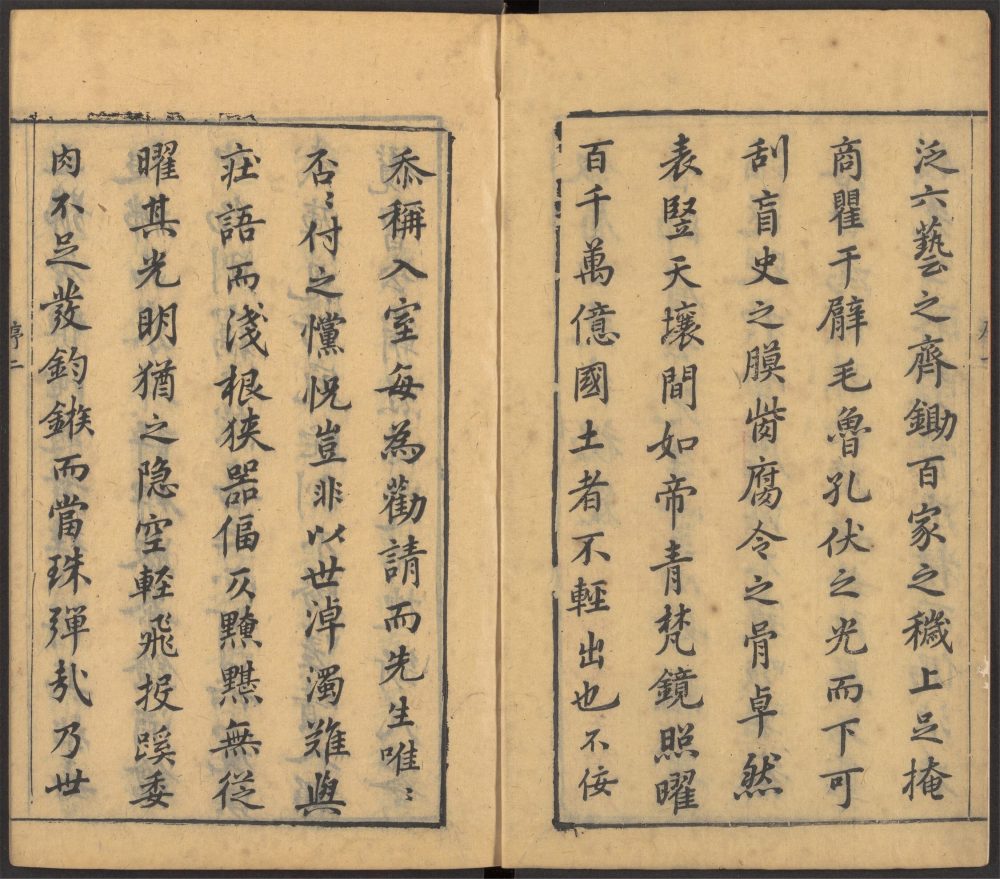 泛六藝之齊鋤百家之穢上足掩
商瞿干臂毛魯孔伏之光而下可
刮盲史之膜齒腐令之骨卓然
表豎天壤間如帝青梵鏡照曜
百千萬億國土者不輕出也不佞
忝稱入室每為勸請而先生唯〻
否〻付之懭怳豈非以世淖濁難與
莊語而淺根狹器偪仄黭黮無從
曜其光明猶之隐空輕飛投蹊委
肉不足發鈞鏃而當珠彈乎乃世
序二